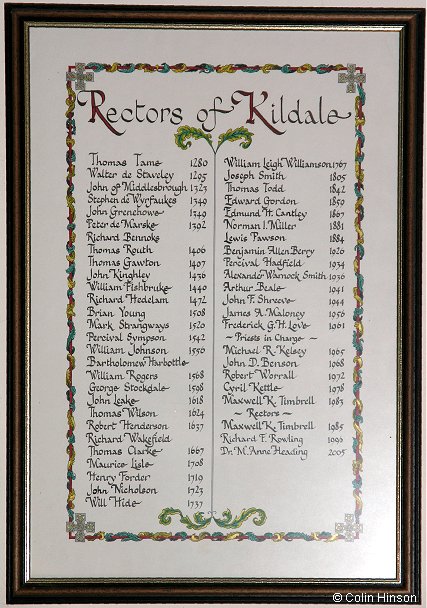 Rectors of Kildale
Thomas Tame 1280
Walter de Staveley 1295
John of Middlesbrough 1323
Stephen de Wyrfaukes 1349
John Grenehowe 1349
Peter de Marske 1392
Richard Bennoks
Thomas Routh 1406
Thomas Gawton 1407
John Kinghley 1436
William Fishbruke 1440
Richard Hedelam 1472
Brian Young 1508
Mark Strangways 1520
Percival Sympson 1542
William Johnson 1550
Bartholomew Harbottle
William Rogers 1568
George Stockdale 1598
John Leake 1618
Thomas Wilson 1624
Robert Henderson 1637
Richard Wakefield
Thomas Clarke 1667
Maurice Lisle 1708
Henry Forder 1719
John Nicholson 1723
Will Hide 1737
William Leigh Williamson 1767
Joseph Smith 1805
Thomas Todd 1842
Edward Gordon 1850
Edmund H. Cantley 1867
Norman I. Miller 1881
Lewis Pawson 1884
Benjamin Allen Berry 1926
Percival Hadfield 1934
Alexander Warnock Smith 1936
Arthur Beale 1941
John F. Shreeve 1944
James A. Maloney 1956
Frederick G. H. Love 1961
~ Priests in Charge ~
Michael R. Kelsey 1965
John D. Benson 1968
Robert Worrall 1972
Cyril Kettle 1978
Maxwell K. Timbrell 1983
~ Rectors ~
Maxwell K. Timbrell 1985
Richard F. Rowling
Dr. M. Anne Heading 2005
© Colin Hinson